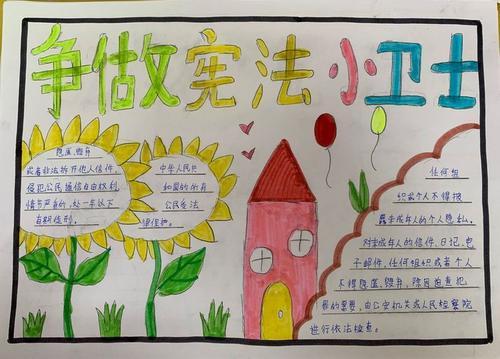 争做宪法小卫士
隐匿、毁弃
或者非法拆开他人信件,
侵犯公民通信自由权利,
情节严重的,处一年以下
有期徒刑。
中华人民共
和国的
公民受法
律保护。
任何组
织或个人不得披
露未成年人的个人隐私。
对未成年人的信件、日记、电
子邮件,任何组织或者个人
不得隐匿、毁弃,除因追查犯
罪的需要,由公安机关或人民检察院
进行依法检查。